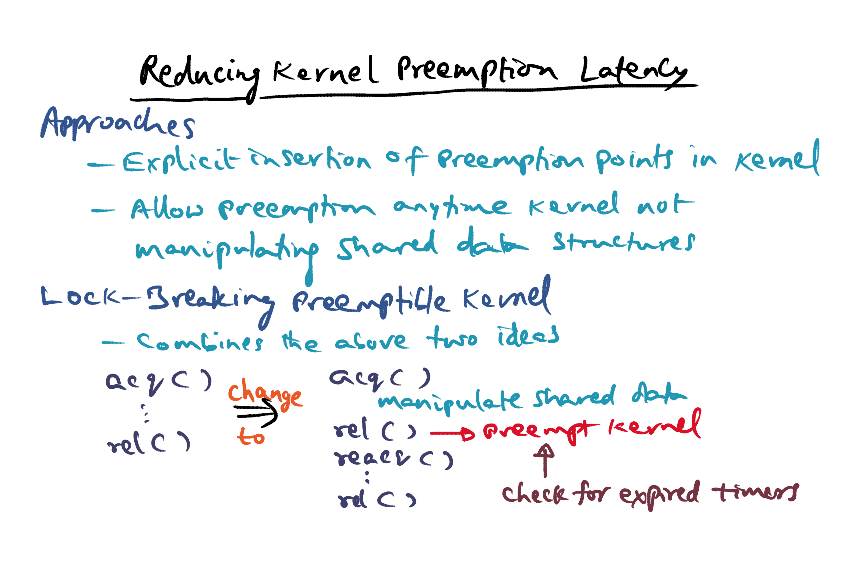 Reducing Kernel Preemption Latency
Approaches
- Explicit insertion of preemption points in kernel
- Allow preemption anytime kernel not
manipulating shared data structures
Lock-Breaking Preemptible Kernel
- Combines the above two ideas
acq() change to acq()
manipulate shared data
⋮ rel() → preempt kernel
rel() reacq() ↑
⋮ check for expired timers
rel()